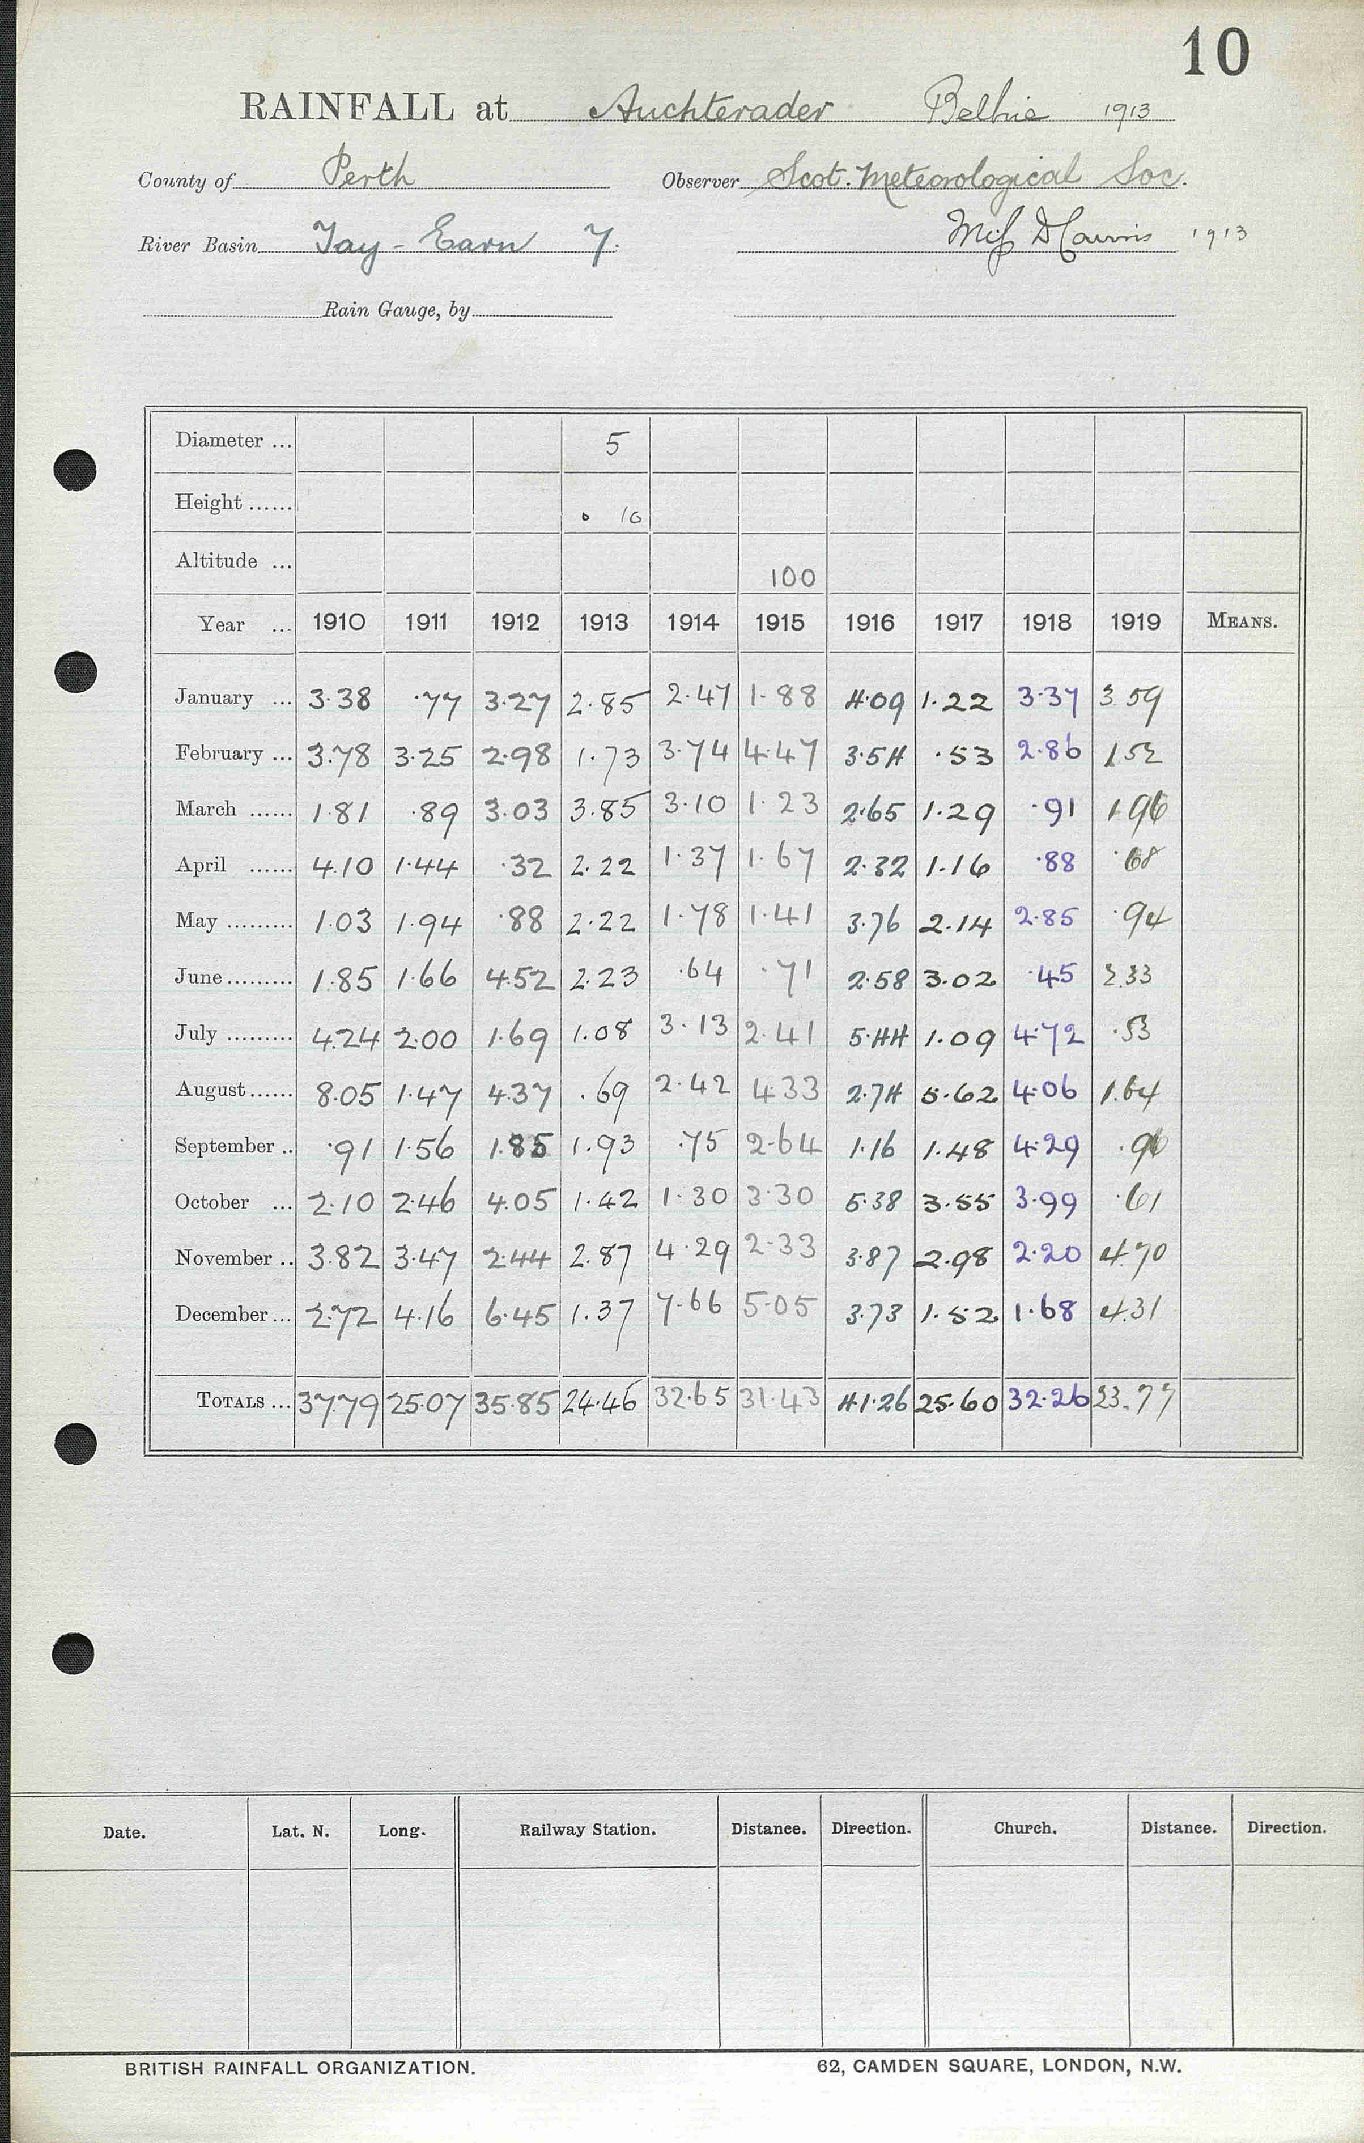 10
RAINFALL at Auchterarder Belhie 1913
County of Perth Observer Scot. Meteorological Soc.
River Basin Tay - Earn 7. 1913
Rain Gauge, by
Diameter ... 5
Height ...... 0 10
Altitude ... 100
Year ... 1910 1911 1912 1913 1914 1915 1916 1917 1918 1919 MEANS.
January ... 3.38 .77 3.27 2.85 2.47 1.88 4.09 1.22 3.37 3.59
February ... 3.78 3.25 2.98 1.73 3.74 4.47 3.54 .53 2.86 1.52
March ...... 1.81 .89 3.03 3.85 3.10 1.23 2.65 1.29 .91 1.96
April ...... 4.10 1.44 .32 2.22 1.37 1.67 2.32 1.16 .88 .68
May ......... 1.03 1.94 .88 2.22 1.78 1.41 3.76 2.14 2.85 .94
June......... 1.85 1.66 4.52 2.23 .64 .71 2.58 3.02 .45 2.33
July ......... 4.24 2.00 1.69 1.08 3.13 2.41 5.44 1.09 4.72 .53
August...... 8.05 1.47 4.37 .69 2.42 4.33 2.74 5.62 4.06 1.64
September .. .91 1.56 1.85 1.93 .75 2.64 1.16 1.48 4.29 .96
October ... 2.10 2.46 4.05 1.42 1.30 3.30 5.38 3.55 3.99 .61
November .. 3.82 3.47 2.44 2.87 4.29 2.33 3.87 2.98 2.20 4.70
December ... 2.72 4.16 6.45 1.37 7.66 5.05 3.73 1.52 1.68 4.31
TOTALS ... 37.79 25.07 35.85 24.46 32.65 31.43 41.26 25.60 32.26 23.77
Date. Lat. N. Long. Railway Station. Distance. Direction. Church. Distance. Direction.
BRITISH RAINFALL ORGANIZATION. 62, CAMDEN SQUARE, LONDON, N.W.